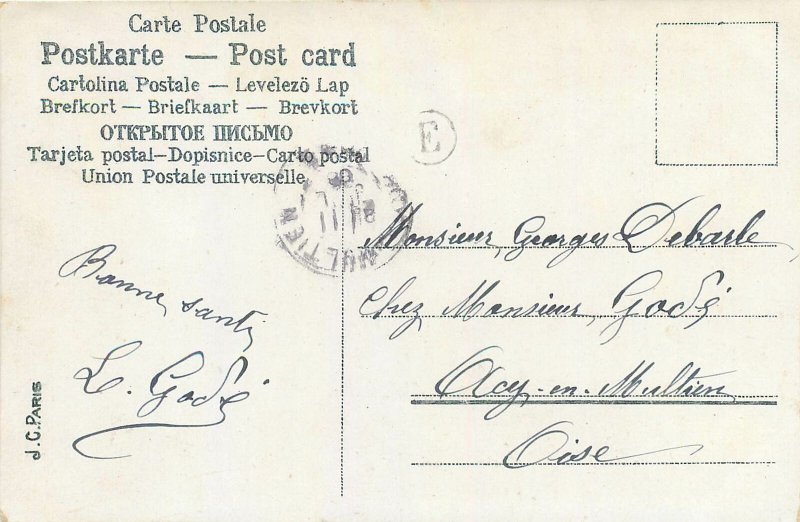 Carte Postale
Postkarte — Post card
Cartolina Postale — Levelező Lap
Brefkort — Briefkaart — Brevkort
ОТКРЫТОЕ ПИСЬМО
Tarjeta postal—Dopisnice—Carto postal
Union Postale universelle
E
MULTIEN
Monsieur Georges Debarle
Chez Monsieur Godé
Acy-en-Multien
Oise
Bonne santé
L. Godé
J.C. PARIS